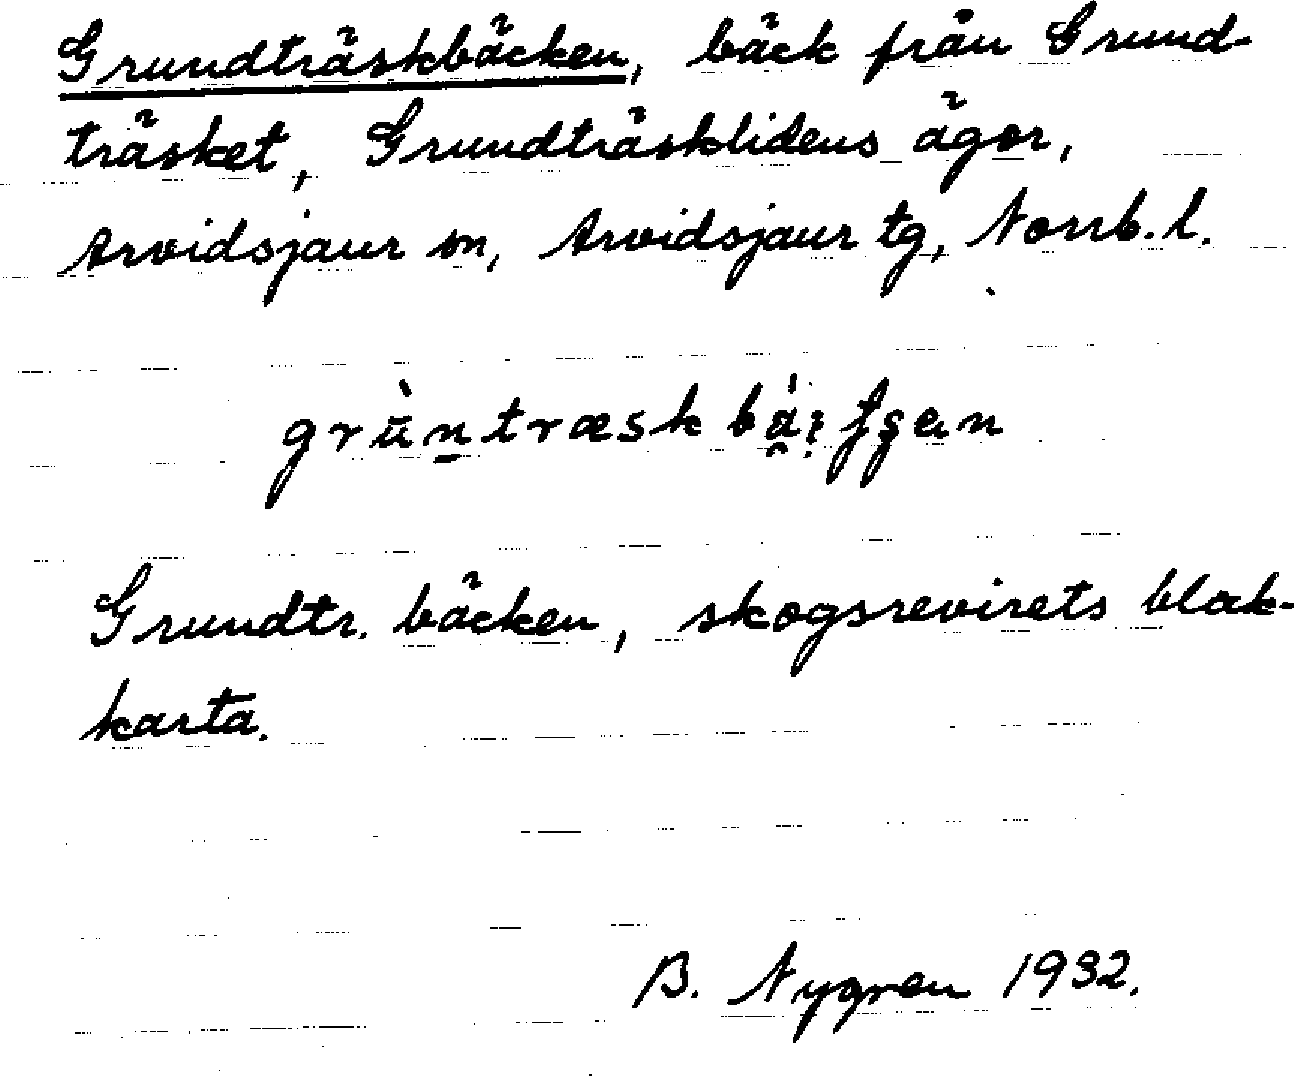 Grundträskbäcken, bäck från Grund-
träsket, Grundträsklidens ägor,
Arvidsjaur sn, Arvidsjaur tg, Norrb. l.
Grundtr. bäcken, skogsrevirets block-
karta.
B. Nygren 1932.